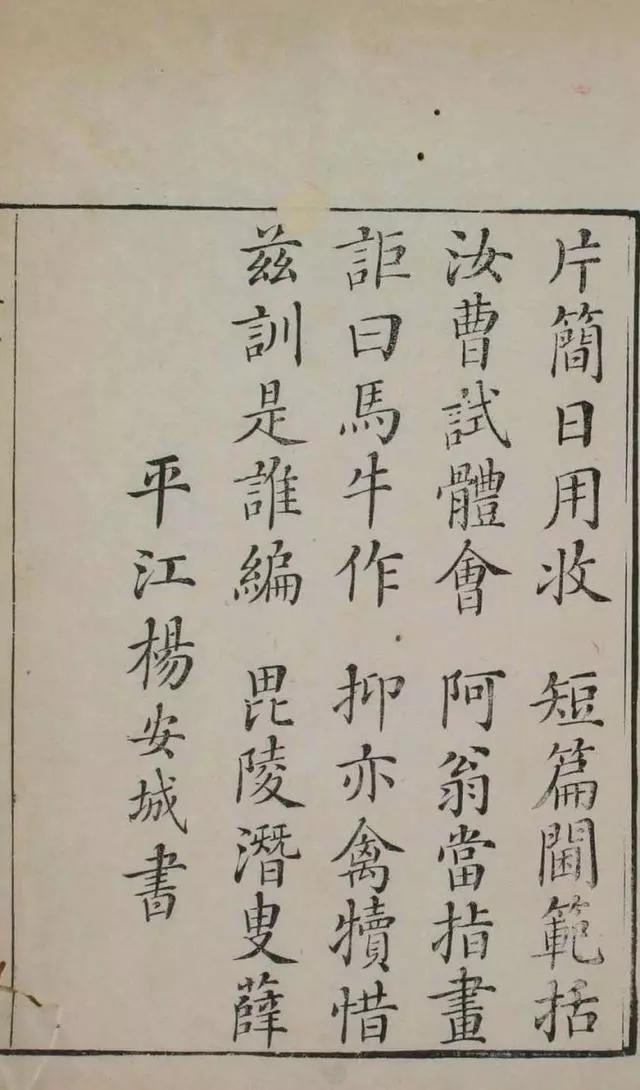 片簡日用收 短篇閫範括
汝曹試體會 阿翁當指畫
詎曰馬牛作 抑亦禽犢惜
茲訓是誰編 毘陵潛叟薛
平江楊安城書